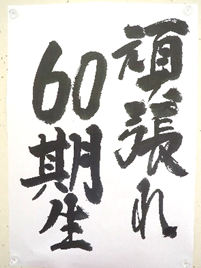 頑張れ
60期生